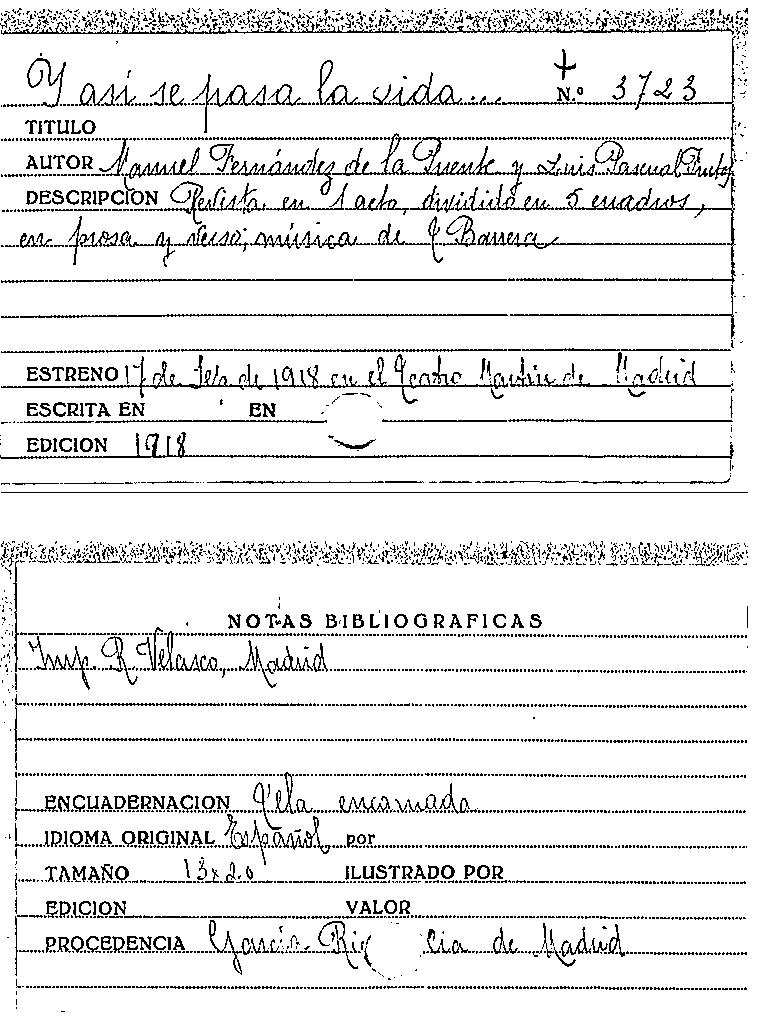 Y así se pasa la vida... N.º 3723
TITULO
AUTOR Manuel Fernández de la Puente y Luis Pascual Frutos
DESCRIPCION Revista en 1 acto, dividido en 5 cuadros,
en prosa y verso; música de T Barrera
ESTRENO 17 de Feb. de 1918 en el Teatro Martín de Madrid
ESCRITA EN EN
EDICION 1918
NOTAS BIBLIOGRAFICAS
Imp. R. Velasco, Madrid
ENCUADERNACION Tela encarnada
IDIOMA ORIGINAL Español por
TAMAÑO 13x20 ILUSTRADO POR
EDICION VALOR
PROCEDENCIA García Ri cia de Madrid